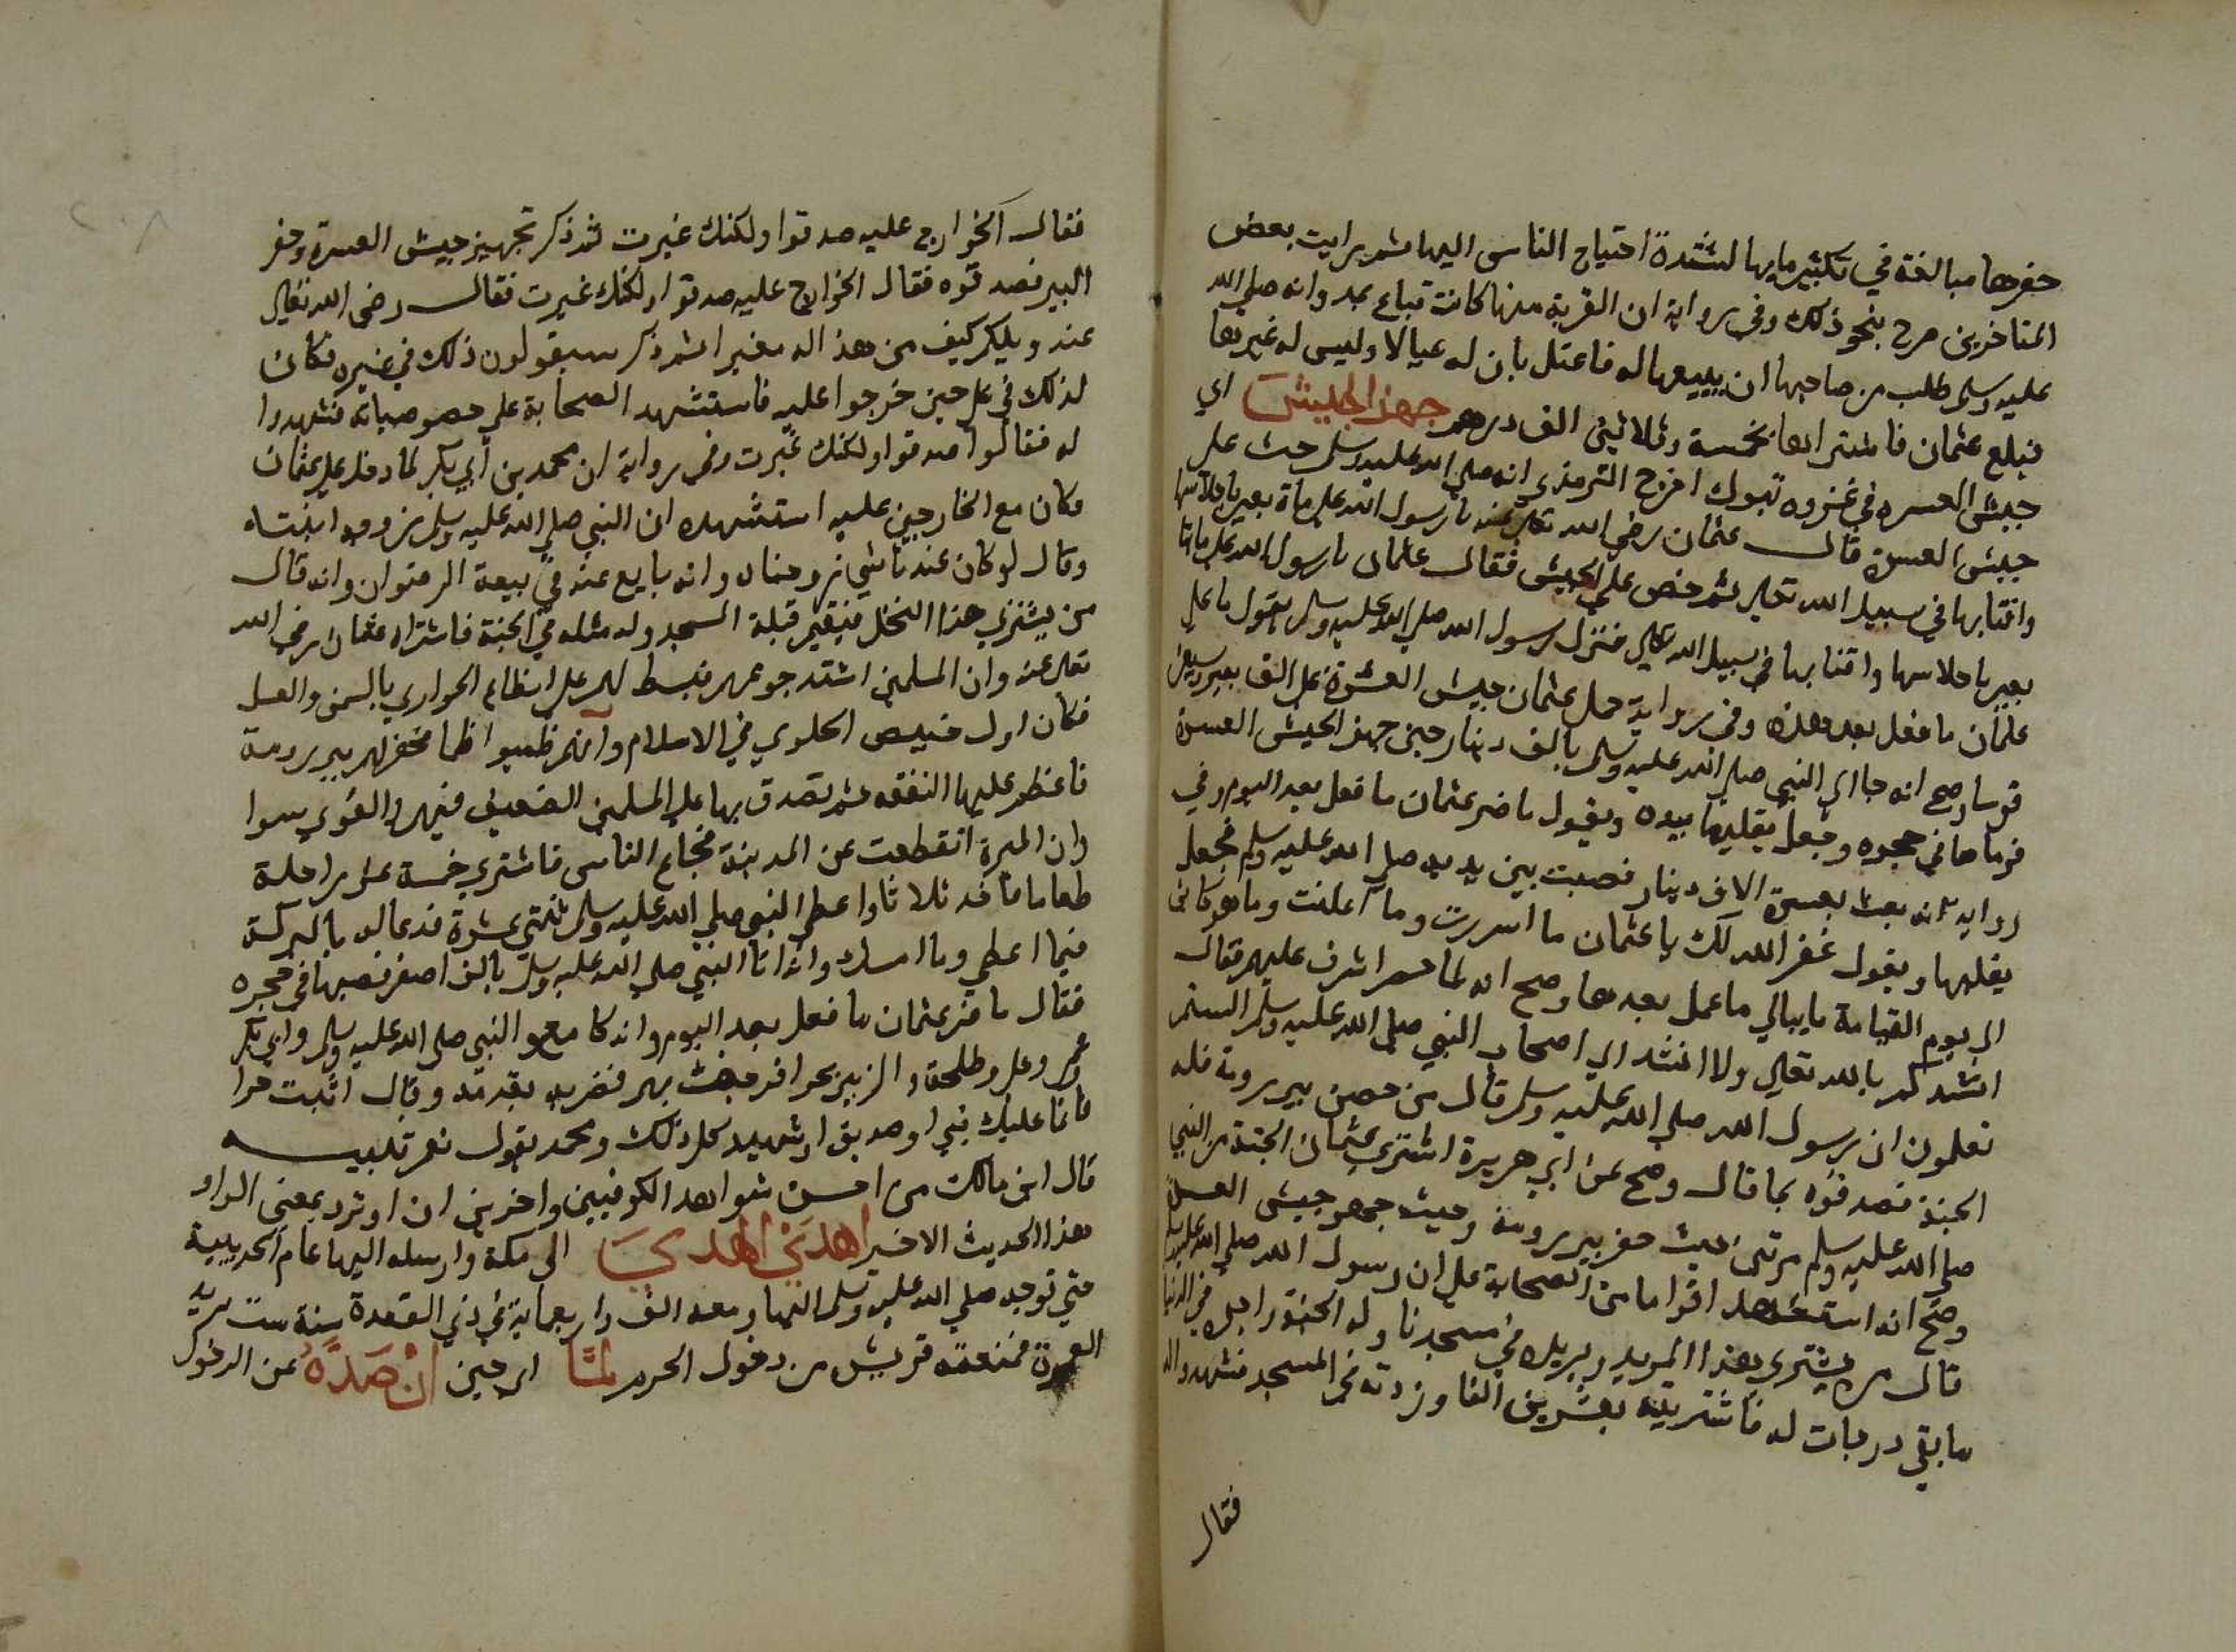 حفرها مبالغة في تكثير مايها لشدة احتياج الناس اليها ثم رايت بعض
المتاخرين صرح بنحو ذلك وفي رواية ان القربة منها كانت تباع بمد وانه صلي الله
عليه وسلم طلب من صاحبها ان يبيعها له فاعتل بان له عيالا وليس له غيرها
فبلغ عثمان فاشتراها بخمسة وثلاثين الف درهم جهز الجيش اي
جيش العسره في غزوه تبوك اخرج الترمذي انه صلي الله عليه وسلم حث على
جيش العسرة قال عثمان رضي الله تعالى عنه يا رسول الله علي ماة بعير باحلاسها
واقتابها في سبيل الله تعالى ثم حض علي الجيش فقال عثمان يا رسول الله علي مايتا
بعير باحلاسها واقتابها في سبيل الله تعالى فنزل رسول الله صلي الله عليه وسلم يقول ما علي
عثمان ما فعل بعد هذه وفي رواية حمل عثمان جيش العسرة علي الف بعير وسبعين
فرسا وصح انه جا الي النبي صلي الله عليه وسلم بالف دينار حين جهز الجيش العسرة
فرماها في حجره وجعل يقلبها بيده ويقول ما ضر عثمان ما فعل بعد اليوم وفي
رواية انه بعث بعشرة الاف دينار فصبت بين يديه صلي الله عليه وسلم فجعل
يقلبها ويقول غفر الله لك يا عثمان ما اسررت وما اعلنت وما هو كائن
الي يوم القيامة ما يبالي ما عمل بعدها وصح انه لما حصر اشرف عليهم فقال
انشدكم بالله تعالي ولا انشد الي اصحاب النبي صلي الله عليه وسلم الستم
تعلمون ان رسول الله صلي الله عليه وسلم قال من حفر بير رومة فله
الجنة فصدقوه بما قال وصح عن ابي هريرة اشتري عثمان الجنة من النبي
صلي الله عليه وسلم مرتين حيث حفر بير رومة وحيث جهز جيش العسرة
وصح انه استشهد اقواما من الصحابة علي ان رسول الله صلي الله عليه وسلم
قال من يشتري هذا المربد ويزيده في مسجدنا وله الجنة واجره في الدنيا
ما بقي درجات له فاشتريته بعشرين الفا وزدته في المسجد فشهدوا له
فقال
فقال الخوارج عليه صدقوا ولكنك غيرت ثم ذكر تجهيز جيش العسرة وحفر
البير فصدقوه فقال الخوارج عليه صدقوا ولكنك غيرت فقال رضي الله تعالى
عنه ويلكم كيف من هذا له مغيرا ثم ذكر سيقولون ذلك في غيره فكان
لذلك في علي حين خرجوا عليه فاستشهد الصحابة علي خصوصياته فشهدوا
له فقالوا صدقوا ولكنك غيرت وفي رواية ان محمد بن ابي بكر لما دخل علي عثمان
وكان مع الخارجين عليه استشهده ان النبي صلي الله عليه وسلم زوجه ابنتاه
وقال لو كان عندنا شي زوجناه وانه بايع عنه في بيعة الرضوان وانه قال
من يشتري هذا النخل فيقيم قبلة المسجد وله مثله في الجنة فاشتراه عثمان رضي الله
تعالى عنه وان المسلمين اشتد جوعهم فبسط لهم علي انطاع الحواري بالسمن والعسل
فكان اول خبيص الحلوي في الاسلام وانهم ظميوا ظما فحفر لهم بير رومة
فاعظم عليها النفقه ثم تصدق بها علي المسلمين الضعيف فيهم والقوي سوا
وان الميرة انقطعت عن المدينة فجاع الناس فاشتري خمسة عشر راحلة
طعاما فاخذ ثلاثا واعطي النبي صلي الله عليه وسلم ثنتي عشرة فدعا له بالبركة
فيما اعطي وما امسك وانه اتا النبي صلي الله عليه وسلم بالف اصفر فصبها في حجره
فقال ما ضر عثمان ما فعل بعد اليوم وانه كان مع النبي صلي الله عليه وسلم وابي بكر
وعمر وعلي وطلحة والزبير بحرا فرجفت بهم فضربه بقدمه وقال اثبت حرا
فانما عليك نبي او صديق او شهيد كل ذلك ومحمد يقول نعم تنبيه
قال ابن مالك من احسن شواهد الكوفيين واخرين ان او ترد بمعني الواو
هذا الحديث الاخير اهدي الهدي الي مكة وارسله اليها عام الحديبية
حتي توجه صلي الله عليه وسلم اليها ومعه الف واربعماية في ذي القعدة سنة ست يريد
العمرة فمنعته قريش من دخول الحرم لما اي حين ان صده عن الدخول